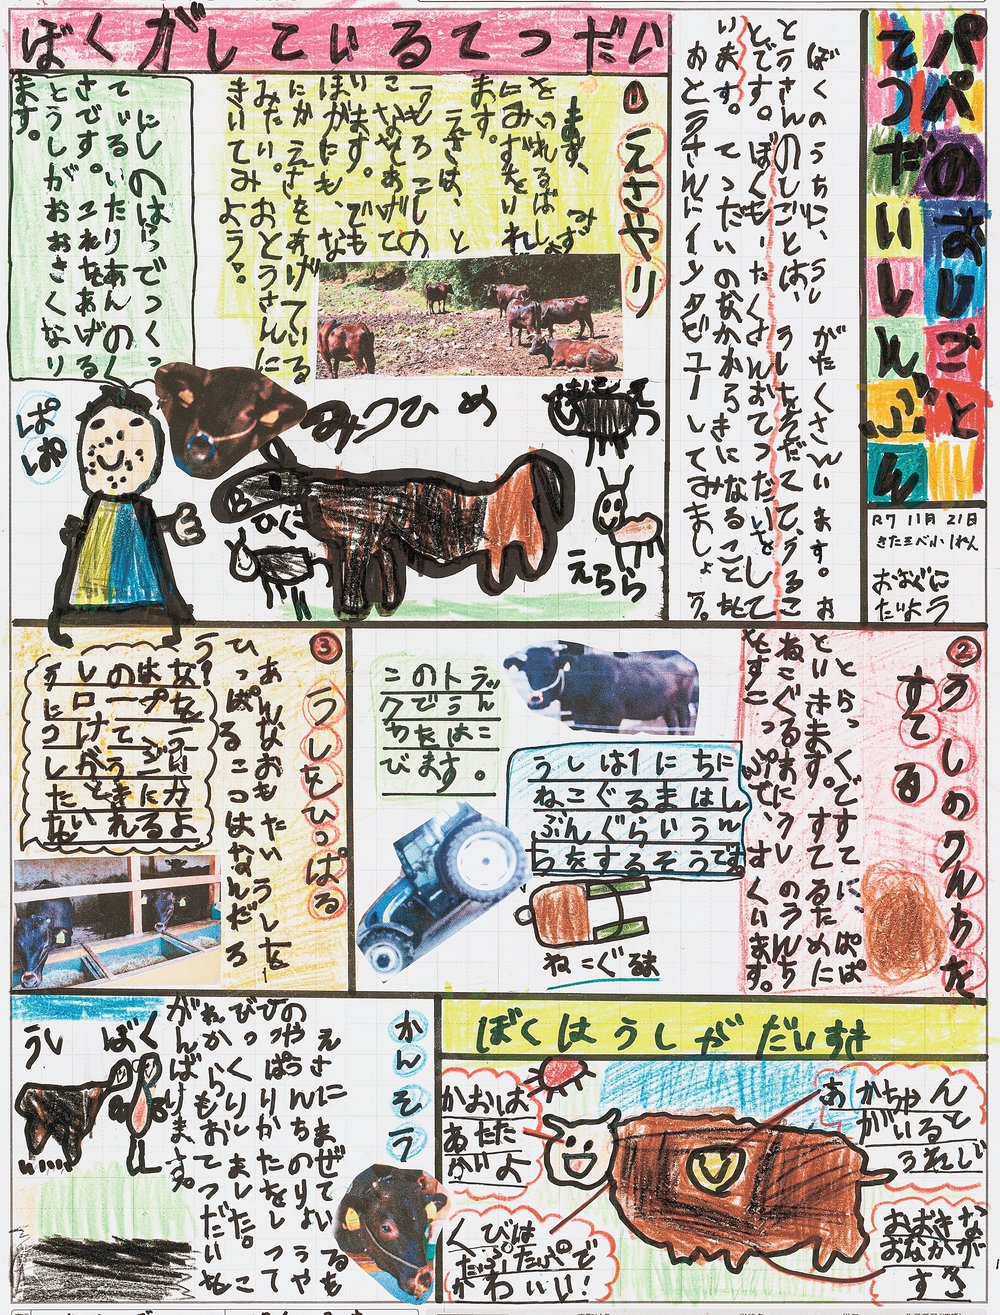 パパのおしごと
てつだいしんぶん
R7 11月21日
きた三べ小1ねん
おおぐに
たいよう
ぼくのうちに、うしがたくさんいます。お
とうさんのしごとは、うしをそだてて、うるこ
とです。ぼくも、たくさんおてつだいをして
います。てつだいのなかからきになることを
おとうさんにインタビューしてみましょう。
ぼくがしているてつだい
①えさやり
まず、みず
をいれるばしょ
にみずをいれ
ます。
えさは、と
うもろこしの
こなをあげて
います。でも
ほかにも、な
にかえさをあげている
みたい。おとうさんに
きいてみよう。
にしのはらでつくっ
ているいたりあんのく
さです。これをあげる
とうしがおおきくなり
ます。
ぱぱ
みつひめ
ひくに
えらら
②うしのうんちを
すてる
とらっくですてに、ぱぱ
といきます。すてるために
ねこぐるまにうしのうんち
をすこっぷで、すくいます。
このトラッ
クでうん
ちをはこ
びます。
うしは1にちに
ねこぐるまはん
ぶんぐらいうん
ちをするそうです
ねこぐるま
③うしをひっぱる
あんなおもたいうしを
ひっぱるこつはなんだろ
う?
うしのはな
にロープを
つけてうご
しがうごい
たときに力
をいれるよ
かんそう
えさにまぜているも
のやうんちのりょうや
ひっぱりかたをしって
びっくりしました。こ
れからもおてつだいを
がんばります。
うし
ぼく
ぼくはうしがだいすき
かおは
あたた
かいよ
あかちゃん
がいると
うれしい
くびは
たぷたぷで
かわいい!
おおきな
おなかが
すき